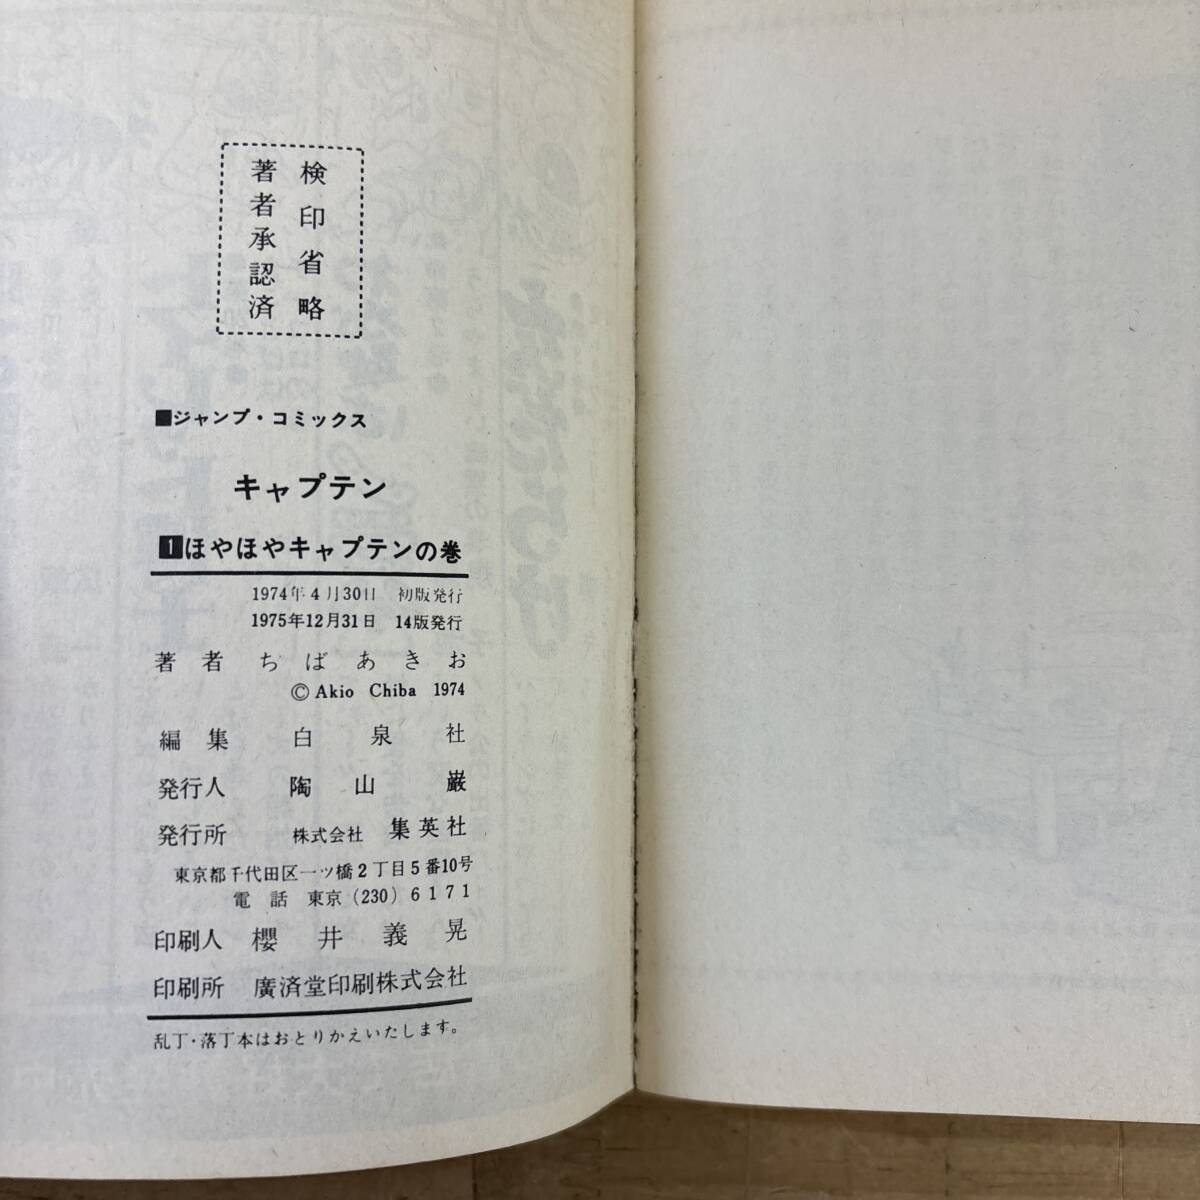 検印省略
著者承認済
■ジャンプ・コミックス
キャプテン
1ほやほやキャプテンの巻
1974年4月30日 初版発行
1975年12月31日 14版発行
著者 ちばあきお
© Akio Chiba 1974
編集 白泉社
発行人 陶山巌
発行所 株式会社 集英社
東京都千代田区一ツ橋2丁目5番10号
電話 東京(230)6171
印刷人 櫻井義晃
印刷所 廣済堂印刷株式会社
乱丁・落丁本はおとりかえいたします。